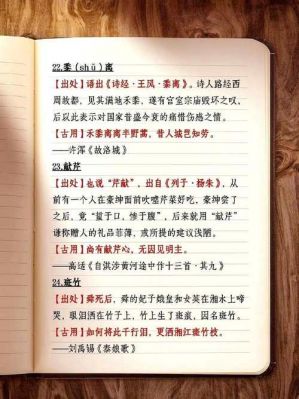 22.黍(shǔ)离
【出处】语出《诗经·王风·黍离》。诗人路经西
周故都，见其满地禾黍，遂有宫室宗庙毁坏之叹，
后以此表示对国家昔盛今衰的痛惜伤感之情。
【古用】禾黍离离半野蒿，昔人城邑知劳。
——许浑《故洛城》
23.献芹
【出处】也说“芹献”，出自《列子·杨朱》，从
前有一个人在豪绅面前吹嘘芹菜好吃，豪绅尝了
之后，竟“蜇于口，惨于腹”，后来就用“献芹”
谦称赠人的礼品菲薄，或所提的建议浅陋。
【古用】尚有献芹心，无因见明主。
——高适《自淇涉黄河途中作十三首·其九》
24.斑竹
【出处】舜死后，舜的妃子娥皇和女英在湘水上啼
哭，眼泪洒在竹子上，竹上生了斑痕，因名斑竹。
【古用】如何将此千行泪，更洒湘江斑竹枝。
——刘禹锡《泰娘歌》